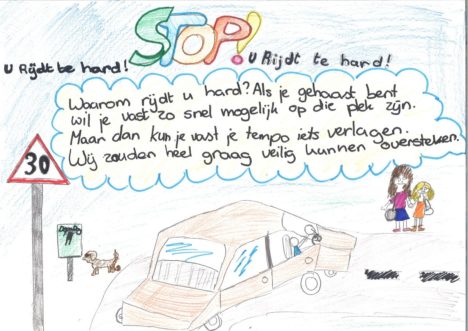 STOP!
U Rijdt te hard!
U Rijdt te hard!
Waarom rijdt u hard? Als je gehaast bent
wil je vast zo snel mogelijk op die plek zijn.
Maar dan kun je vast je tempo iets verlagen.
Wij zouden heel graag veilig kunnen oversteken.
30